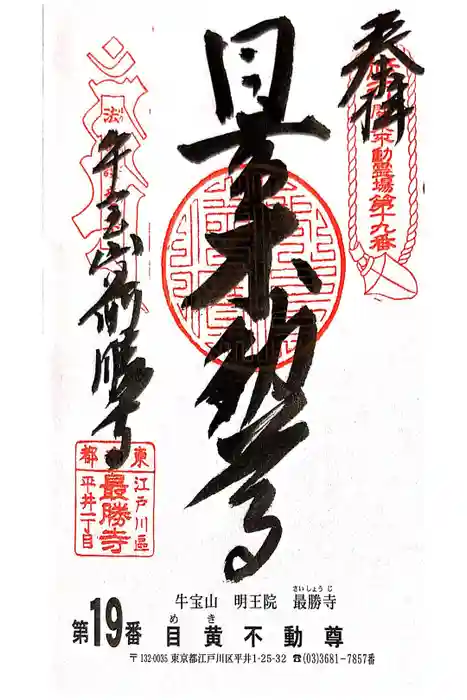 奉拝
不動霊場第十九番
目黄不動尊
法
牛宝山最勝寺
東京都
江戸川區
最勝寺
平井一丁目
牛宝山 明王院 最勝寺
さいしょうじ
第19番 目黄不動尊
めき
〒132-0035 東京都江戸川区平井1-25-32 ☎(03)3681-7857番